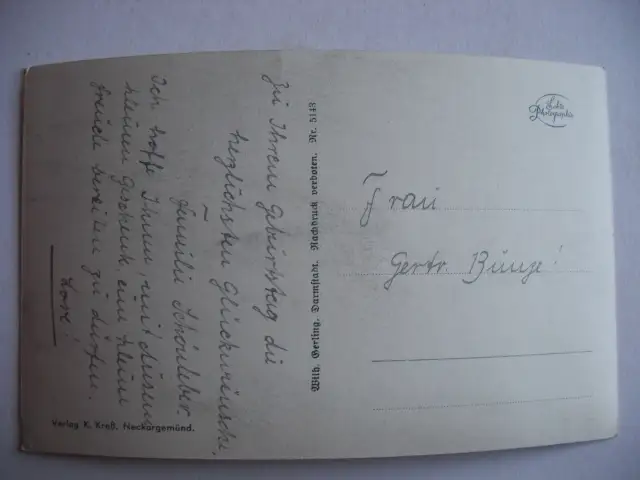 Zu Ihrem Geburtstag die
herzlichsten Glückwünsche.
Familie Schönleber.
Ich hoffe Ihnen, mit diesem
kleinen Geschenk eine kleine
Freude bereiten zu dürfen.
Lore!
Verlag K. Kreß, Neckargemünd.
Wilh. Gerling, Darmstadt. Nachdruck verboten. Nr. 5148
Echte
Photographie
Frau
Gertr. Bunge!